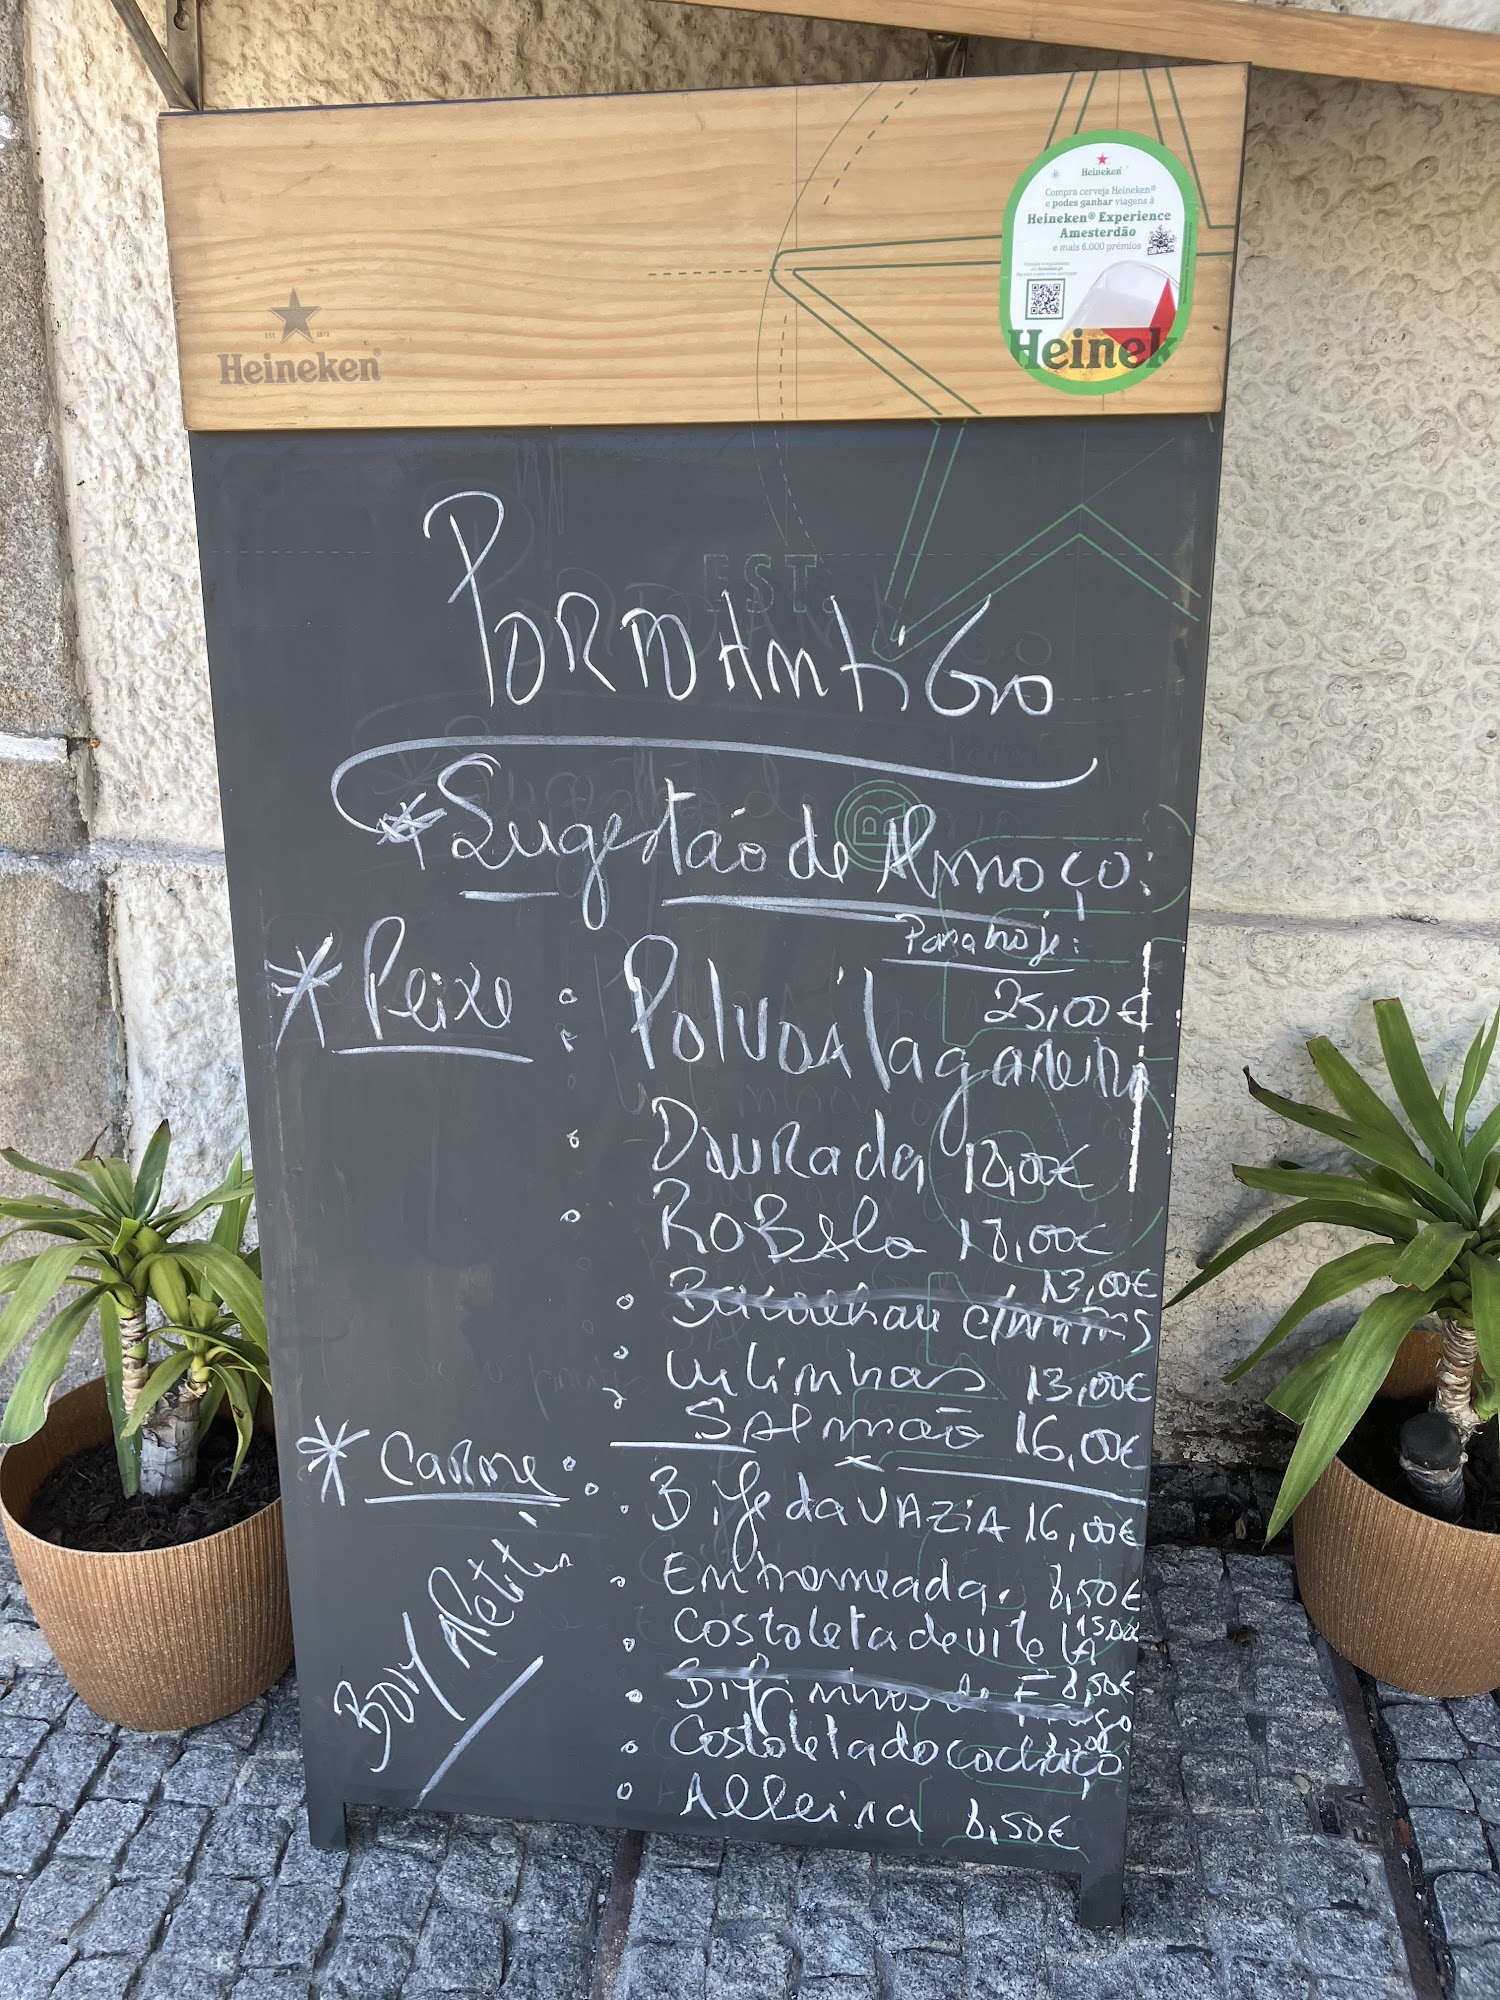 Heineken
Compra cerveja Heineken®
e podes ganhar viagens à
Heineken® Experience
Amesterdão
e mais 6.000 prémios
Heinek
EST 1873
Heineken®
EST.
PORTO ANTiGO
* Sugestão de Almoço:
Para hoje:
* Peixe : Polvo á lagareiro 25,00€
Dourada 18,00€
ROBALo 18,00€
Bacalhau c/natas 13,00€
Lulinhas 13,00€
SALmão 16,00€
* Carne : Bife da VAZiA 16,00€
Entremeada. 8,50€
Costoleta de vitelA 15,00€
Bifinhos de Frago 8,50€
Costoleta do cachaço
Alheira 8,50€
BOM APetite